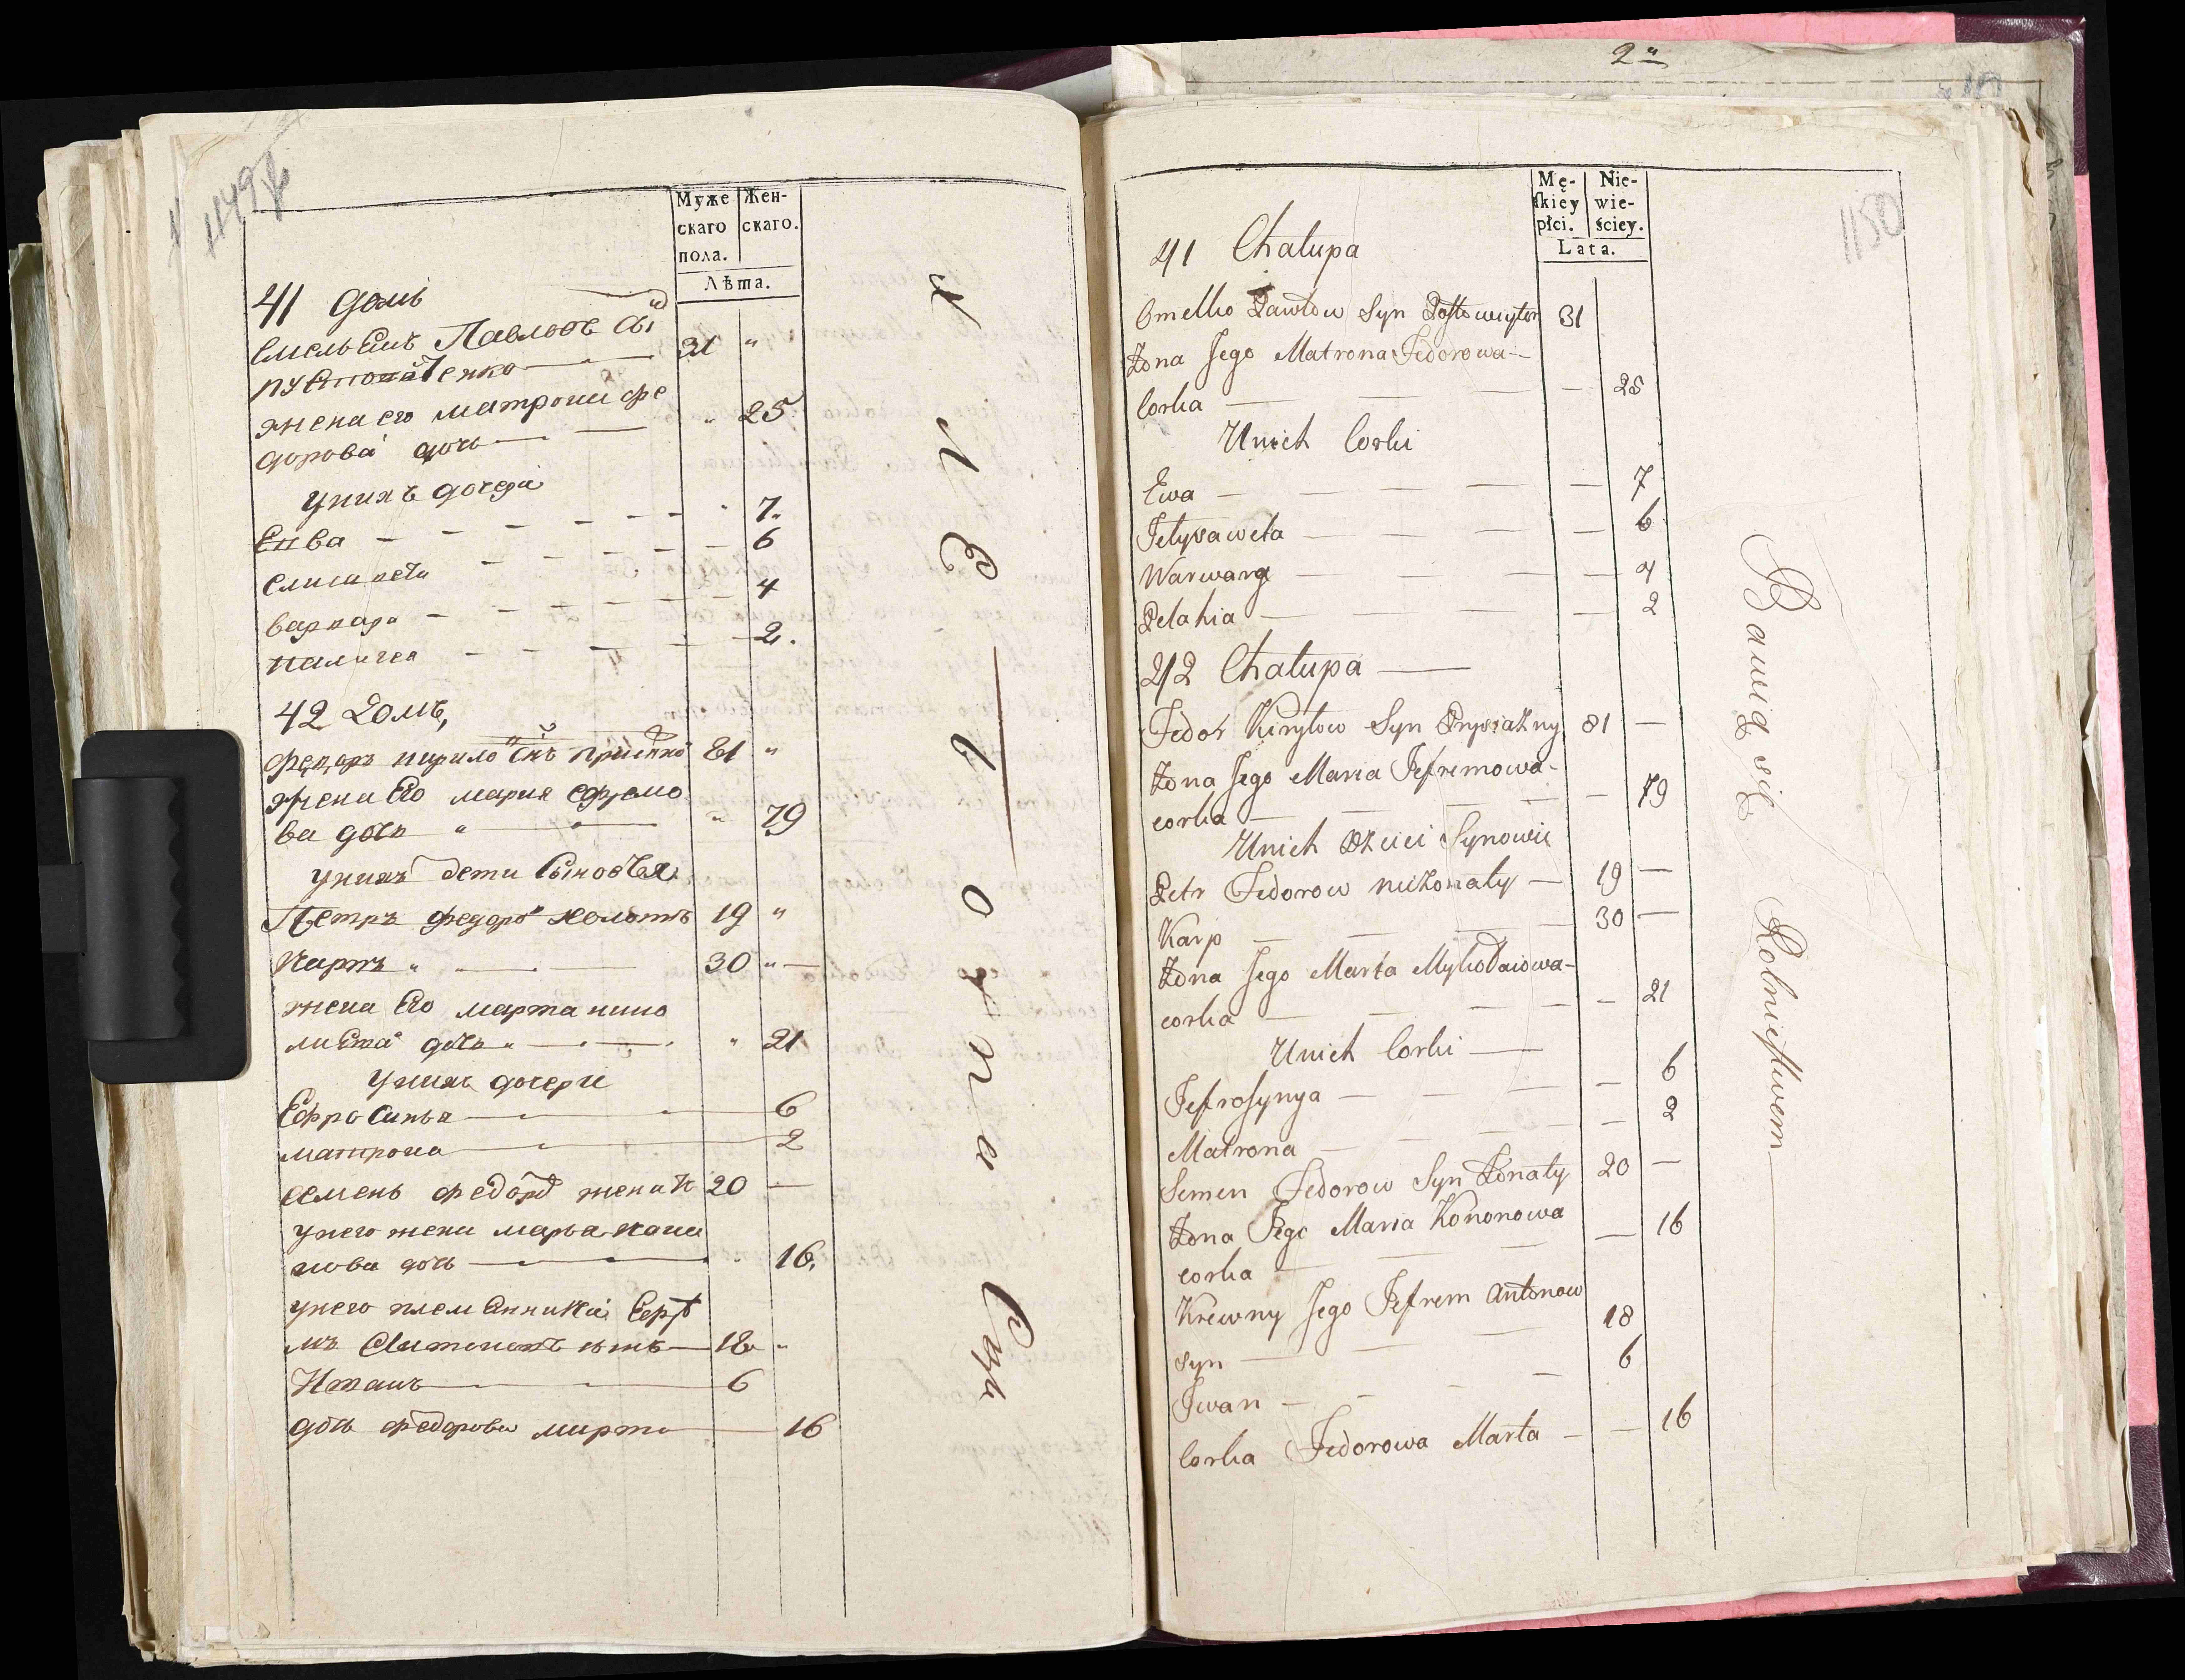 1149
Муже
скаго
пола.
Жен-
скаго.
Лѣта.
41 Домъ
Емельянъ Павловъ Сы 31 "
жена его матрона фе
дорова дочь — " 25
Унихъ дочери
Евва — 7.
Елисавета — 6
варвара — 4
палагея — 2.
42 Домъ
федоръ кирило 81 "
жена Его мария Ефремо
ва дочь " 79
Унихъ дети Сыновья
Петръ федоро холостъ 19 "
Карпъ " 30 " —
жена Его марта нико
дочь " 21
Унихъ дочери
Ефросинья — 6
матрона — 2
Семенъ федоро женат 20 —
Унего жена марья коно
нова дочь — 16.
Унего племянники Ефре
мъ Антоновъ — 18 "
Иванъ — 6
дочь федорова марта — 16
Хлебо
1150
2
Mę-
skiey
płci.
Nie-
wie-
ściey.
Lata.
41 Chalupa
Omelko Pawłow Syn 31
Zona Jego Matrona Fedorowa—
Corka — 25
Unich Corki
Ewa — 7
Jelysaweta — 6
Warwara — 4
Pelahia — 2
42 Chalupa —
Fedor Kiryłow Syn Prysiazny 81 —
Zona Jego Maria Jefremowa—
corka — 79
Unich Dzieci Synowie
Petr Fedorow niezonaty — 19 —
Karp — 30 —
Zona Jego Marta Mykołaiowa—
corka — 21
Unich Corki —
Jefrosynya — 6
Matrona — 2
Semen Fedorow Syn Zonaty 20 —
Zona Jego Maria Kononowa
corka — 16
Krewny Jego Jefrem Antonow
syn — 18
Iwan — 6
Corka Fedorowa Marta — 16
Bawią się Rolnictwem